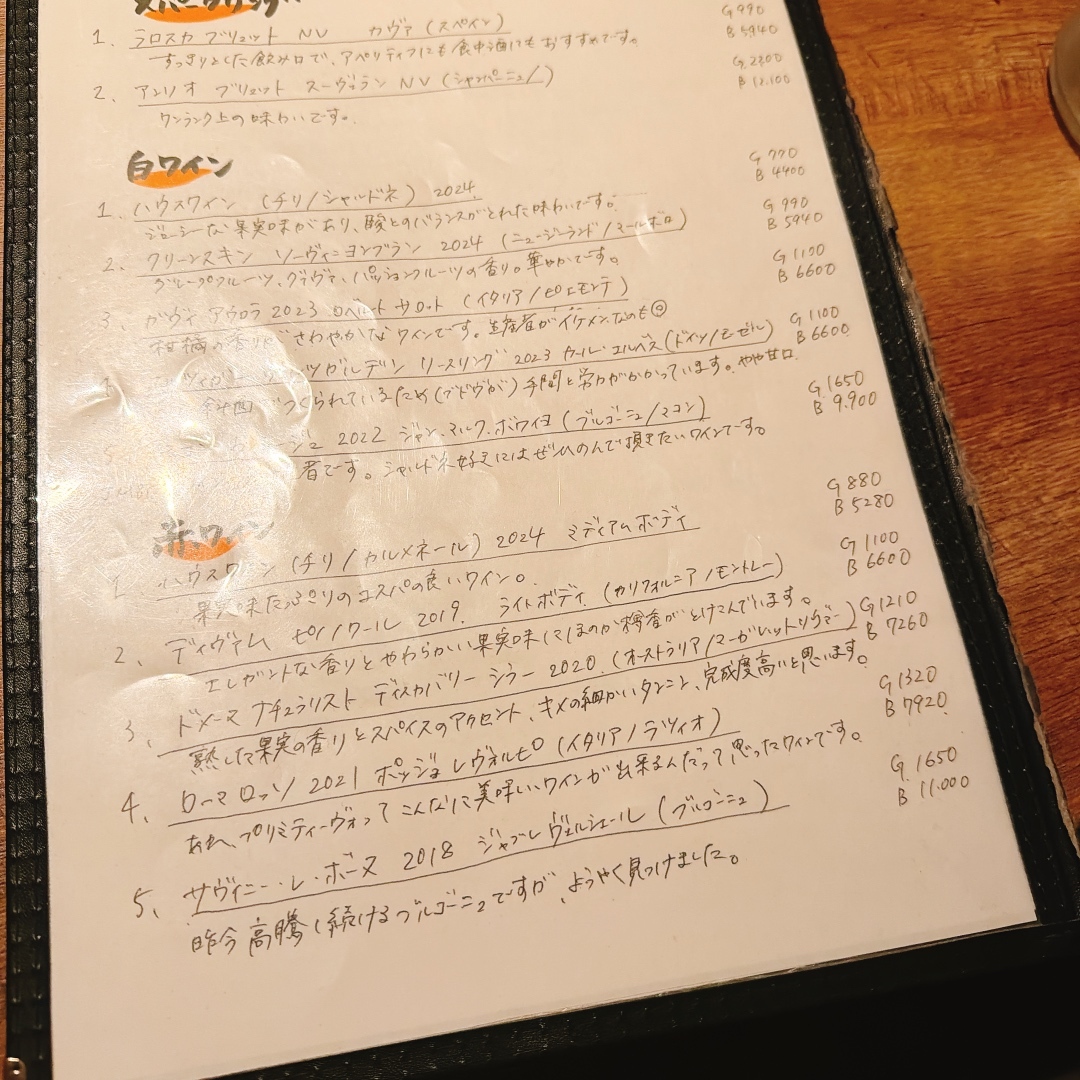 スパークリング
1、 ラロスカ ブリュット NV カヴァ (スペイン) G 990
すっきりとした飲み口で、アペリティフにも食中酒にもおすすめです。 B 5940
2、 アンリオ ブリュット スーヴェラン NV (シャンパーニュ) G 2200
ワンランク上の味わいです。 B 12.100
白ワイン
1、 ハウスワイン (チリ/シャルドネ) 2024 G 770
ジューシーな果実味があり、酸とのバランスがとれた味わいです。 B 4400
2、 クリーンスキン ソーヴィニヨンブラン 2024 (ニュージーランド/マールボロ) G 990
グレープフルーツ、グァヴァ、パッションフルーツの香り。華やかです。 B 5940
3、 ガヴィ アウロラ 2023 ロベルト サロット (イタリア/ピエモンテ) G 1100
柑橘の香り さわやかなワインです。生産者がイケメンなのも◎ B 6600
ツガルテン リースリング 2023 カール・エルベス (ドイツ/モーゼル) G 1100
斜面 つくられているため (ブドウが) 手間と労力がかかっています。やや甘口 B 6600
ジュ 2022 ジャン・マルク・ボワイヨ (ブルゴーニュ/マコン) G 1650
者です。シャルドネ好きにはぜひのんで頂きたいワインです。 B 9.900
赤ワイン
1、 ハウスワイン (チリ/カルメネール) 2024 ミディアムボディ G 880
果実味たっぷりのコスパの良いワイン。 B 5280
2、 ディヴァム ピノノワール 2019、 ライトボディ (カリフォルニア/モントレー) G 1100
エレガントな香りとやわらかい果実味にほのか樽香がとけこんでいます。 B 6600
3、 ドメーヌ ナチュラリスト ディスカバリー シラー 2020 (オーストラリア/マーガレットリヴァー) G 1210
熟した果実の香りとスパイスのアクセント、キメの細かいタンニン、完成度高いと思います。 B 7260
4、 ローマ ロッソ 2021 ポッジョ レ ヴォルピ (イタリア/ラツィオ) G 1320
あれ、プリミティーヴォってこんなに美味しいワインが出来るんだって思ったワインです。 B 7920
5、 サヴィニー・レ・ボーヌ 2018 ジャブレ ヴェルシェール (ブルゴーニュ) G 1650
昨今高騰し続けるブルゴーニュですが、ようやく見つけました。 B 11.000